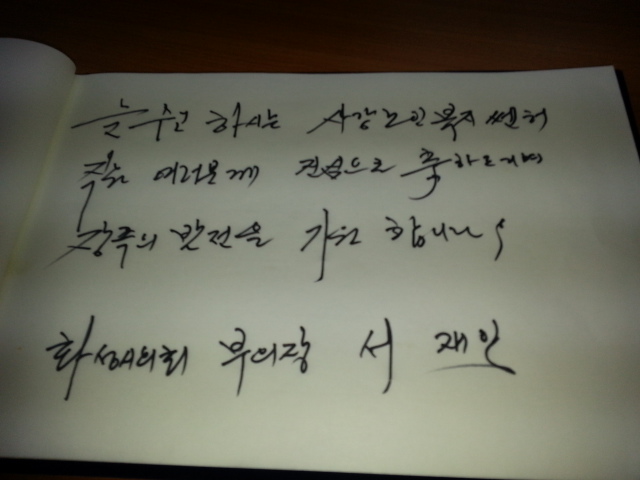 늘 수고 하시는 사강노인복지쎈터
직원 여러분께 진심으로 축하드리며
장족의 발전을 기원 합니다
화성시의회 부의장 서 재 일